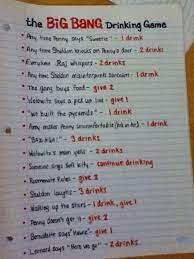 the BIG BANG Drinking Game
Any time Penny says "Sweetie" - 1 drink
Any time Sheldon knocks on Penny's door - 2 drinks
Everytime Raj whispers - 2 drinks
Any time Sheldon misinterprets sarcasm - 1 drink
The gang buys food - give 2
Wolowitz says a pick up line - give 1
"We built the pyramids" - 1 drink
Amy makes Penny uncomfortable (hit on her) - 1 drink
"BAZINGA!" - 3 drinks
Wolowitz's mom yells - 2 drinks
Someone sings soft kitty - continue drinking
Roommate Rules - give 2
Sheldon laughs - 3 drinks
Walking up the stairs - 1 drink, give 1
Penny doesn't get it - give 2
Bernadette says "Howie" - give 1
Leonard says "Here we go" - 2 drinks